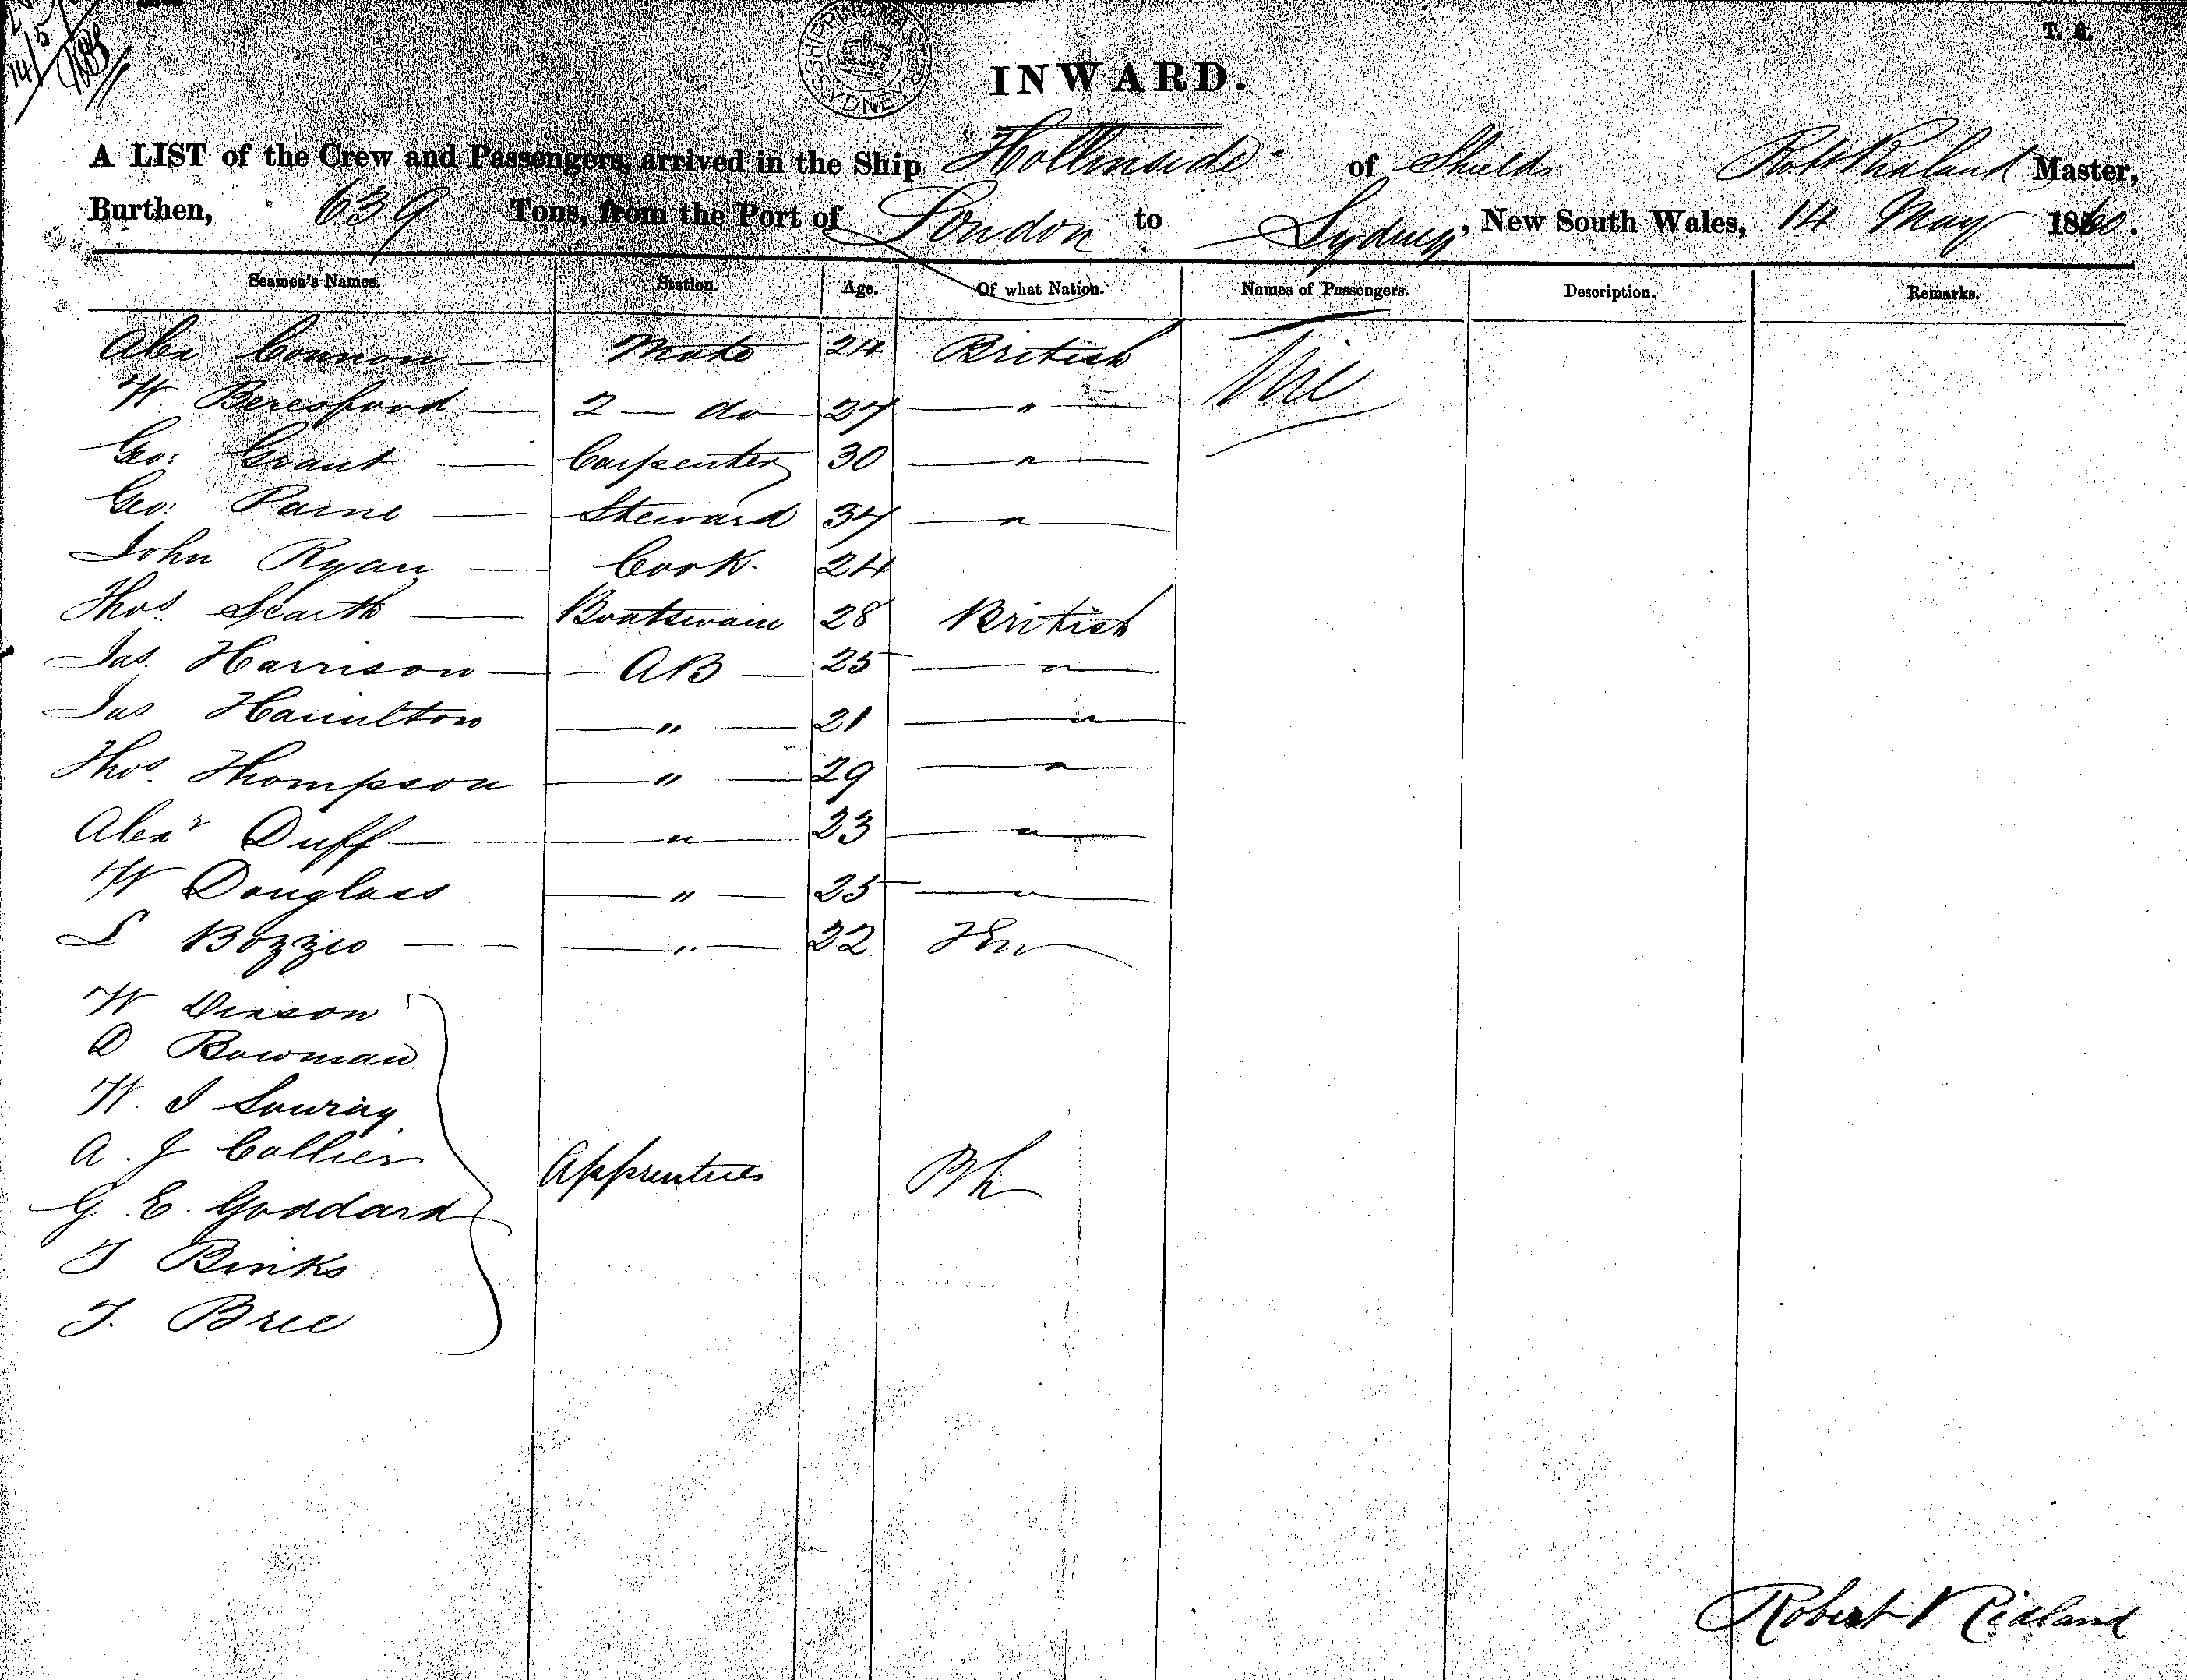 14/5
SHIPPING MASTER SYDNEY
T. S.
INWARD.
A LIST of the Crew and Passengers, arrived in the Ship "Hollinside" of Shields Master,
Burthen, 639 Tons, from the Port of London to Sydney, New South Wales, 14 May 1860.
Seamen's Names. Station. Age. Of what Nation. Names of Passengers. Description. Remarks.
Alex Connon Mate 24 British Nil
W Beresford 2 do 27 "
Geo: Grant Carpenter 30 "
Geo: Paine Steward 37 "
John Ryan Cook. 24
Thos. Scarth Boatswain 28 British
Jas. Harrison AB 25 "
Jas Hamilton " 21 "
Thos. Thompson " 29 "
Alexr Duff " 23 "
W Douglass " 25 "
L Bozzio " 22
W Dixson
D Bowman
W. J Lowray
A. J Collier Apprentices
G. E. Goddard
T Binks
T. Bree
Robert Ridland